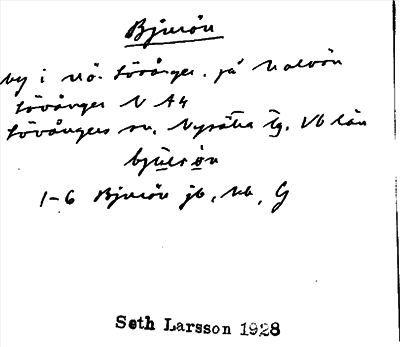 Bjurön
by i nö. Lövånger. på halvön
Lövånger N A4
Lövångers sn, Nysätra tg, Vb län
bjurön
1-6 Bjurön jb, hb, G
Seth Larsson 1928